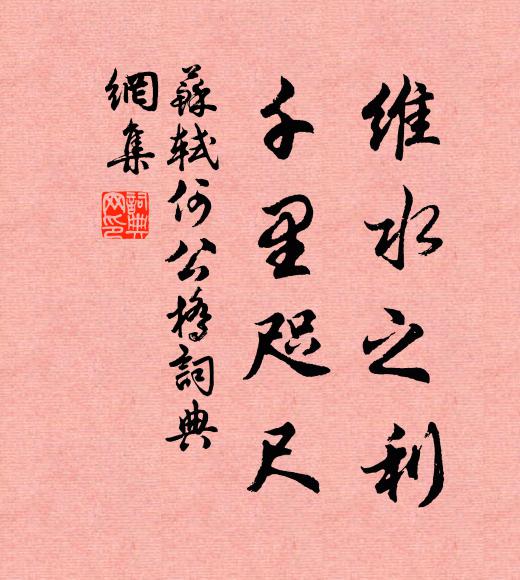 維水之利
千里咫尺
蘇軾何公橋詞典
網集
詞典
网印